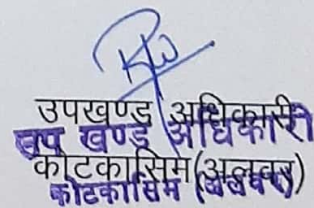 उपखण्ड अधिकारी
उप खण्ड अधिकारी
कोटकासिम(अलवर)
कोटकासिम (अलवर)